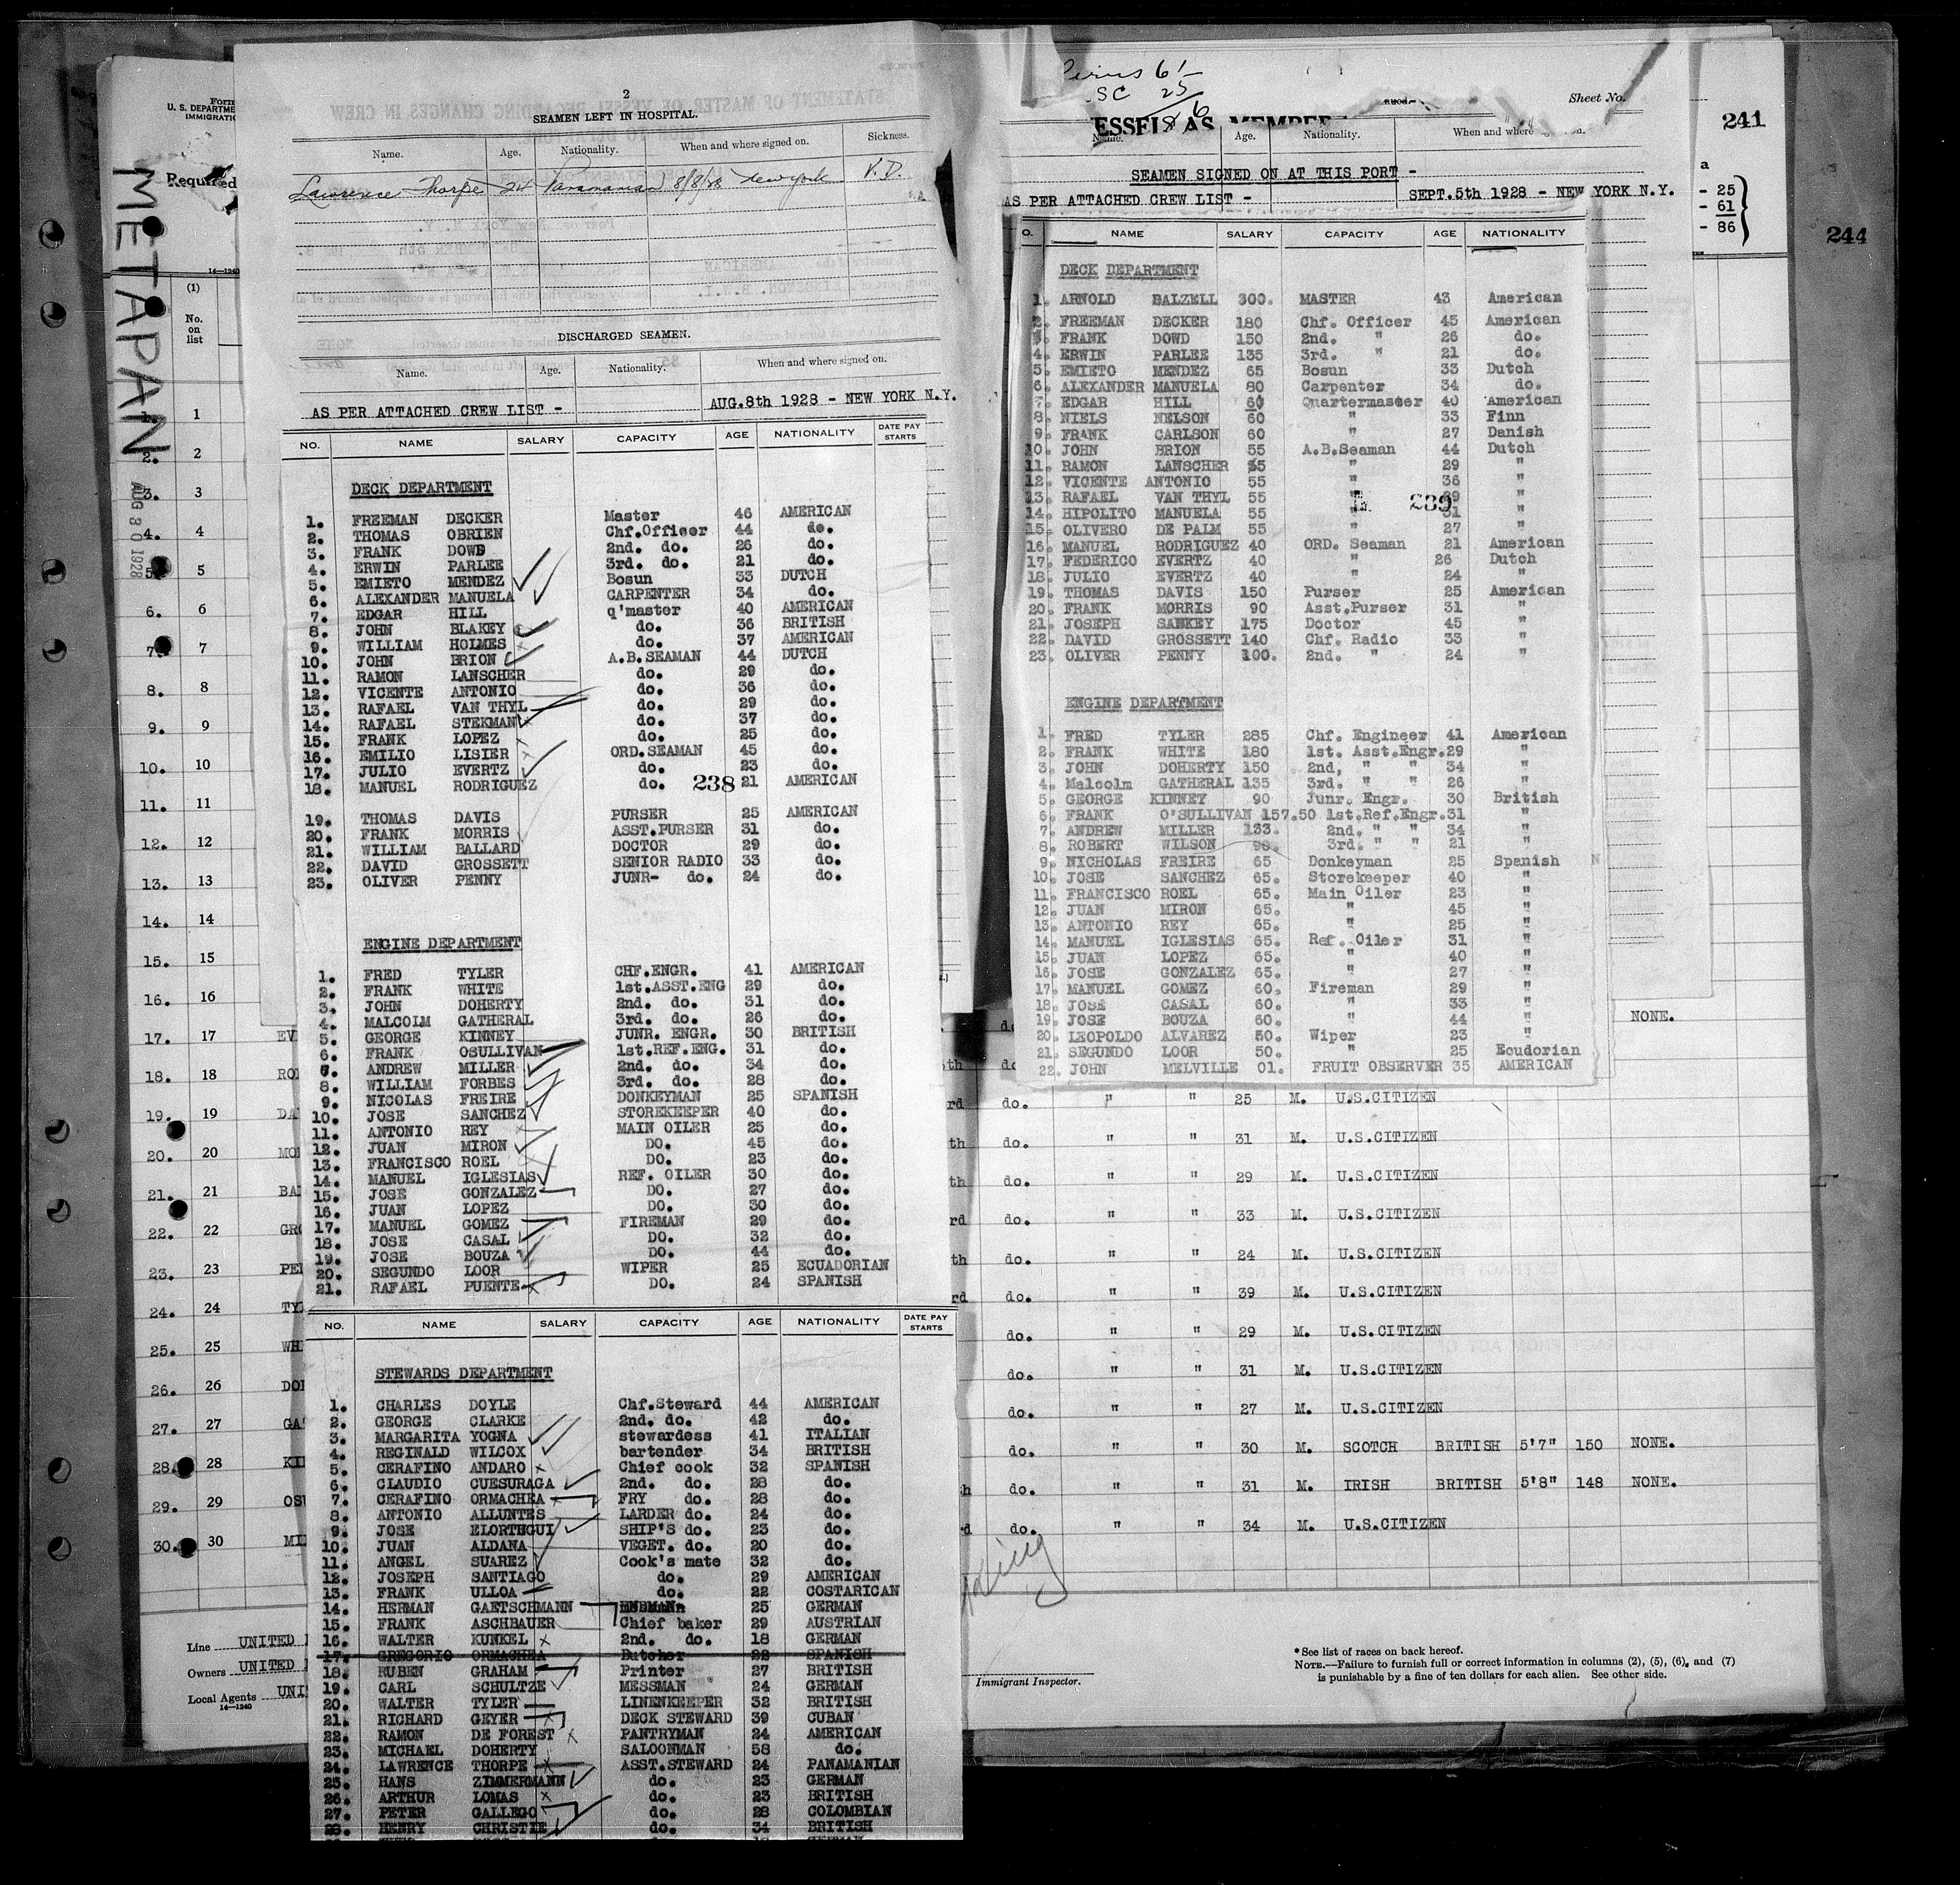 METAPAN
AUG 30 1928
Form
U. S. DEPARTME
IMMIGRATIO
Required
14—1240
(1)
No.
on
list
1
2. 2
3. 3
4. 4
5. 5
6. 6
7. 7
8. 8
9. 9
10. 10
11. 11
12. 12
13. 13
14. 14
15. 15
16. 16
17. 17 EV
18. 18 RO
19. 19 DA
20. 20 MO
21. 21 BA
22. 22 GR
23. 23 PE
24. 24 TY
25. 25 WH
26. 26 DO
27. 27 GA
28. 28 KI
29. 29 OS
30. 30 MI
Line UNITED
Owners UNITED
Local Agents UNI
14—1240
2
SEAMEN LEFT IN HOSPITAL.
Name. Age. Nationality. When and where signed on. Sickness.
Lawrence Thorpe 24 Panamanian 8/8/28 New York V.D.
DISCHARGED SEAMEN.
Name. Age. Nationality. When and where signed on.
AS PER ATTACHED CREW LIST - AUG.8th 1928 - NEW YORK N.Y.
NO. NAME SALARY CAPACITY AGE NATIONALITY DATE PAY STARTS
DECK DEPARTMENT
1. FREEMAN DECKER Master 46 AMERICAN
2. THOMAS OBRIEN Chf.Officer 44 do.
3. FRANK DOWD 2nd. do. 26 do.
4. ERWIN PARLEE 3rd. do. 21 do.
5. EMIETO MENDEZ Bosun 33 DUTCH
6. ALEXANDER MANUELA CARPENTER 34 do.
7. EDGAR HILL q'master 40 AMERICAN
8. JOHN BLAKEY do. 36 BRITISH
9. WILLIAM HOLMES do. 37 AMERICAN
10. JOHN BRION A.B.SEAMAN 44 DUTCH
11. RAMON LANSCHER do. 29 do.
12. VICENTE ANTONIO do. 36 do.
13. RAFAEL VAN THYL do. 29 do.
14. RAFAEL STEKMAN do. 37 do.
15. FRANK LOPEZ do. 25 do.
16. EMILIO LISIER ORD.SEAMAN 45 do.
17. JULIO EVERTZ do. 23 do.
18. MANUEL RODRIGUEZ do. 238 21 AMERICAN
19. THOMAS DAVIS PURSER 25 AMERICAN
20. FRANK MORRIS ASST.PURSER 31 do.
21. WILLIAM BALLARD DOCTOR 29 do.
22. DAVID GROSSETT SENIOR RADIO 33 do.
23. OLIVER PENNY JUNR- do. 24 do.
ENGINE DEPARTMENT
1. FRED TYLER CHF.ENGR. 41 AMERICAN
2. FRANK WHITE 1st.ASST.ENG 29 do.
3. JOHN DOHERTY 2nd. do. 31 do.
4. MALCOLM GATHERAL 3rd. do. 26 do.
5. GEORGE KINNEY JUNR. ENGR. 30 BRITISH
6. FRANK OSULLIVAN 1st.REF.ENG. 31 do.
7. ANDREW MILLER 2nd. do. 34 do.
8. WILLIAM FORBES 3rd. do. 28 do.
9. NICOLAS FREIRE DONKEYMAN 25 SPANISH
10. JOSE SANCHEZ STOREKEEPER 40 do.
11. ANTONIO REY MAIN OILER 25 do.
12. JUAN MIRON DO. 45 do.
13. FRANCISCO ROEL DO. 23 do.
14. MANUEL IGLESIAS REF. OILER 30 do.
15. JOSE GONZALEZ DO. 27 do.
16. JUAN LOPEZ DO. 30 do.
17. MANUEL GOMEZ FIREMAN 29 do.
18. JOSE CASAL DO. 32 do.
19. JOSE BOUZA DO. 44 do.
20. SEGUNDO LOOR WIPER 25 ECUADORIAN
21. RAFAEL PUENTE DO. 24 SPANISH
NO. NAME SALARY CAPACITY AGE NATIONALITY DATE PAY STARTS
STEWARDS DEPARTMENT
1. CHARLES DOYLE Chf.Steward 44 AMERICAN
2. GEORGE CLARKE 2nd. do. 42 do.
3. MARGARITA YOGNA stewardess 41 ITALIAN
4. REGINALD WILCOX bartender 34 BRITISH
5. CERAFINO ANDARO Chief cook 32 SPANISH
6. CLAUDIO CUESURAGA 2nd. do. 28 do.
7. CERAFINO ORMACHEA FRY do. 28 do.
8. ANTONIO ALLUNTES LARDER do. 24 do.
9. JOSE ELORTEGUI SHIP'S do. 23 do.
10. JUAN ALDANA VEGET. do. 20 do.
11. ANGEL SUAREZ Cook's mate 32 do.
12. JOSEPH SANTIAGO do. 29 AMERICAN
13. FRANK ULLOA do. 22 COSTARICAN
14. HERMAN GAETSCHMANN 25 GERMAN
15. FRANK ASCHBAUER Chief baker 29 AUSTRIAN
16. WALTER KUNKEL 2nd. do. 18 GERMAN
17. GREGORIO ORMACHEA Butcher 22 SPANISH
18. RUBEN GRAHAM Printer 27 BRITISH
19. CARL SCHULTZE MESSMAN 24 GERMAN
20. WALTER TYLER LINENKEEPER 32 BRITISH
21. RICHARD GEYER DECK STEWARD 39 CUBAN
22. RAMON DE FOREST PANTRYMAN 24 AMERICAN
23. MICHAEL DOHERTY SALOONMAN 58 do.
24. LAWRENCE THORPE ASST.STEWARD 24 PANAMANIAN
25. HANS ZIMMERMANN do. 23 GERMAN
26. ARTHUR LOMAS do. 23 BRITISH
27. PETER GALLEGO do. 28 COLOMBIAN
28. HENRY CHRISTIE do. 34 BRITISH
61
SC 25
Sheet No.
241
244
ESSEL AS MEMBER
Name. Age. Nationality. When and where
SEAMEN SIGNED ON AT THIS PORT -
AS PER ATTACHED CREW LIST - SEPT.5th 1928 - NEW YORK N.Y.
a
- 25
- 61
- 86
O. NAME SALARY CAPACITY AGE NATIONALITY
DECK DEPARTMENT
1. ARNOLD BALZELL 300. MASTER 43 American
2. FREEMAN DECKER 180 Chf. Officer 45 American
3. FRANK DOWD 150 2nd. " 26 do.
4. ERWIN PARLEE 135 3rd. " 21 do.
5. EMIETO MENDEZ 65 Bosun 33 Dutch
6. ALEXANDER MANUELA 80 Carpenter 34 do.
7. EDGAR HILL 60 Quartermaster 40 American
8. NIELS NELSON 60 " 33 Finn
9. FRANK CARLSON 60 " 27 Danish
10. JOHN BRION 55 A.B.Seaman 44 Dutch
11. RAMON LANSCHER 55 " 29 "
12. VICENTE ANTONIO 55 " 36 "
13. RAFAEL VAN THYL 55 " 239 "
14. HIPOLITO MANUELA 55 " 31 "
15. OLIVERO DE PALM 55 " 27 "
16. MANUEL RODRIGUEZ 40 ORD. Seaman 21 American
17. FEDERICO EVERTZ 40 " 26 Dutch
18. JULIO EVERTZ 40 " 24 "
19. THOMAS DAVIS 150 Purser 25 American
20. FRANK MORRIS 90 Asst.Purser 31 "
21. JOSEPH SANKEY 175 Doctor 45 "
22. DAVID GROSSETT 140 Chf. Radio 33 "
23. OLIVER PENNY 100. 2nd. " 24 "
ENGINE DEPARTMENT
1. FRED TYLER 285 Chf. Engineer 41 American
2. FRANK WHITE 180 1st. Asst.Engr. 29 "
3. JOHN DOHERTY 150 2nd, " " 34 "
4. Malcolm GATHERAL 135 3rd. " " 26 "
5. GEORGE KINNEY 90 Junr. Engr. 30 British
6. FRANK O'SULLIVAN 157.50 1st.Ref.Engr. 31 "
7. ANDREW MILLER 133. 2nd. " " 34 "
8. ROBERT WILSON 90. 3rd. " " 21 "
9. NICHOLAS FREIRE 65 Donkeyman 25 Spanish
10. JOSE SANCHEZ 65. Storekeeper 40 "
11. FRANCISCO ROEL 65. Main Oiler 23 "
12. JUAN MIRON 65. " 45 "
13. ANTONIO REY 65. " 25 "
14. MANUEL IGLESIAS 65. Ref. Oiler 31 "
15. JUAN LOPEZ 65. " 40 "
16. JOSE GONZALEZ 65. " 27 "
17. MANUEL GOMEZ 60. Fireman 29 "
18. JOSE CASAL 60. " 33 "
19. JOSE BOUZA 60. " 44 "
20. LEOPOLDO ALVAREZ 50. Wiper 23 "
21. SEGUNDO LOOR 50. " 25 Ecudorian
22. JOHN MELVILLE 01. FRUIT OBSERVER 35 AMERICAN
do. NONE.
th do.
rd do. " " 25 M. U.S.CITIZEN
th do. " " 31 M. U.S.CITIZEN
th do. " " 29 M. U.S.CITIZEN
rd do. " " 33 M. U.S.CITIZEN
th do. " " 24 M. U.S.CITIZEN
rd do. " " 39 M. U.S.CITIZEN
do. " " 29 M. U.S.CITIZEN
do. " " 31 M. U.S.CITIZEN
do. " " 27 M. U.S.CITIZEN
do. " " 30 M. SCOTCH BRITISH 5'7" 150 NONE.
h do. " " 31 M. IRISH BRITISH 5'8" 148 NONE.
rd do. " " 34 M. U.S.CITIZEN
Immigrant Inspector.
* See list of races on back hereof.
NOTE.—Failure to furnish full or correct information in columns (2), (5), (6), and (7)
is punishable by a fine of ten dollars for each alien. See other side.